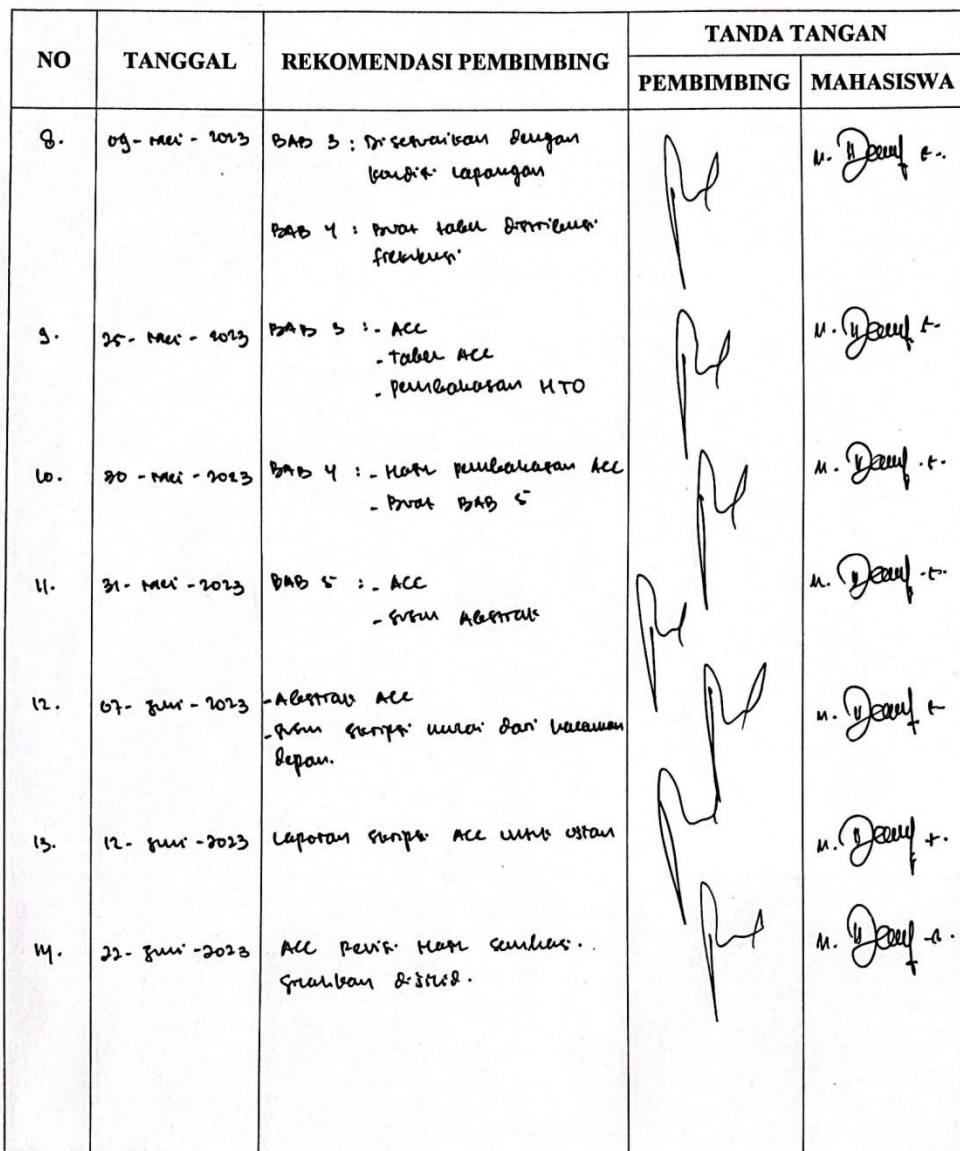 NO TANGGAL REKOMENDASI PEMBIMBING TANDA TANGAN
PEMBIMBING MAHASISWA
8. 09 - Mei - 2023 BAB 3 : Disesuaikan dengan
kondisi lapangan
BAB 4 : Buat tabel distribusi
frekuensi
9. 25 - Mei - 2023 BAB 3 : - ACC
- Tabel ACC
- pembahasan HTO
10. 30 - Mei - 2023 BAB 4 : - Hasil pembahasan ACC
- Buat BAB 5
11. 31 - Mei - 2023 BAB 5 : - ACC
- susun Abstrak
12. 07 - Juni - 2023 - Abstrak ACC
- susun skripsi mulai dari halaman
depan.
13. 12 - Juni - 2023 Laporan skripsi ACC untuk
14. 22 - Juni - 2023 ACC Revisi Hasil semhas.
Silahkan dijilid.